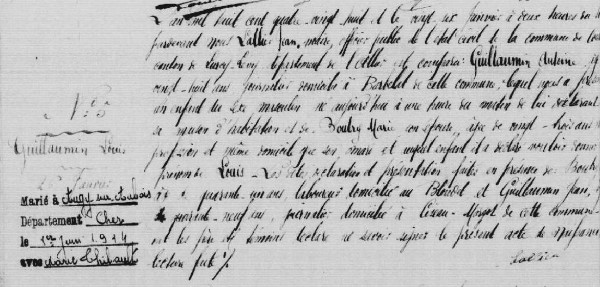 L'an mil huit cent quatre-vingt huit et le vingt six janvier à deux heures du
pardevant nous Jean, maire, officier public de l'état civil de la commune de
canton de Lurcy-Lévy département de l'Allier est comparu Guillaumin Antoine
vingt-huit ans journalier domicilié à de cette commune, lequel nous a
un enfant du sexe masculin né aujourd'hui à une heure du matin de lui déclarant
sa maison d'habitation et de Boulry Marie son épouse, âgée de vingt-trois ans
profession et même domicile que son mari et auquel enfant il a déclaré vouloir donner
prénoms Louis. Les dite déclaration et présentation faites en présence de
quarante-un ans, laboureur domicilié au et Guillaumin Jean,
quarante-neuf ans, journalier domicilié à de cette commune
et les père et témoins déclaré ne savoir signer le présent acte de naissance
lecture faite
N° 5
Guillaumin Louis
Marié à Augy sur Aubois
Département Cher
le 1er juin 1914
avec Marie Thibault